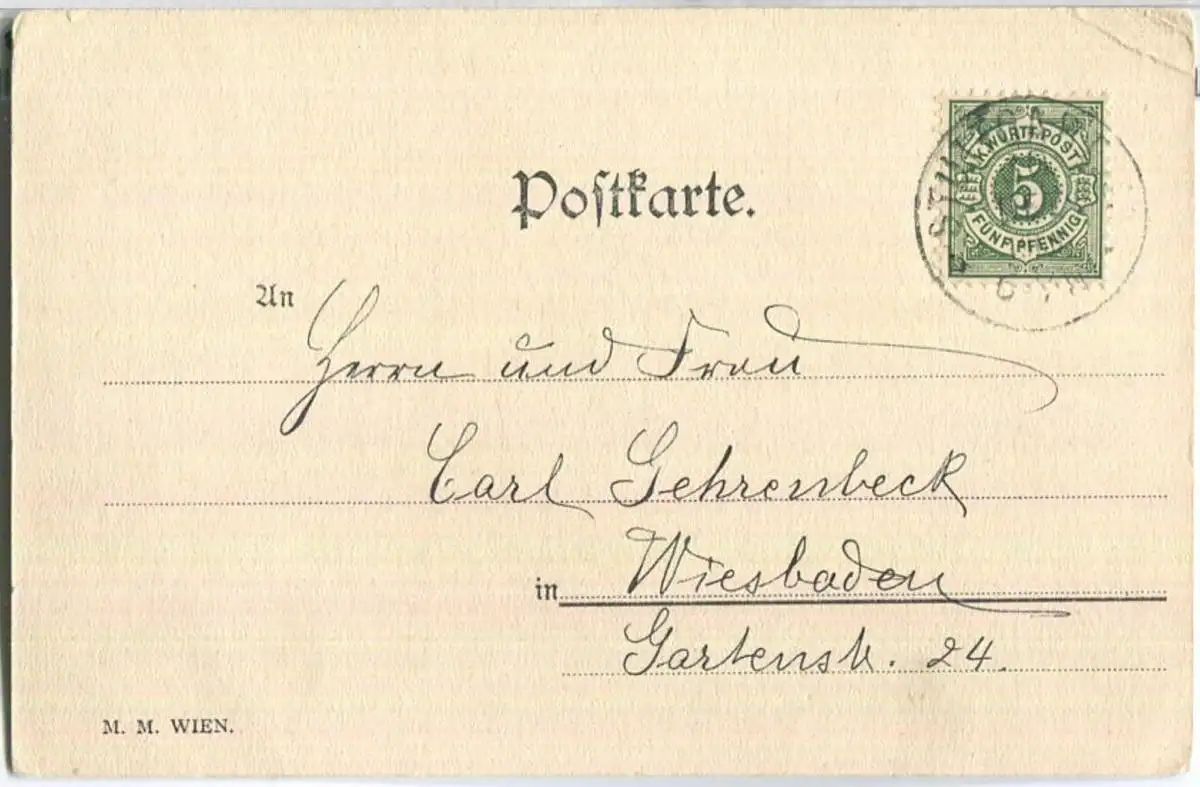 Postkarte.
K. WÜRTT. POST
5
FÜNF PFENNIG
An
Herrn und Frau
Carl Gehrenbeck
in Wiesbaden
Gartenstr. 24.
M. M. WIEN.